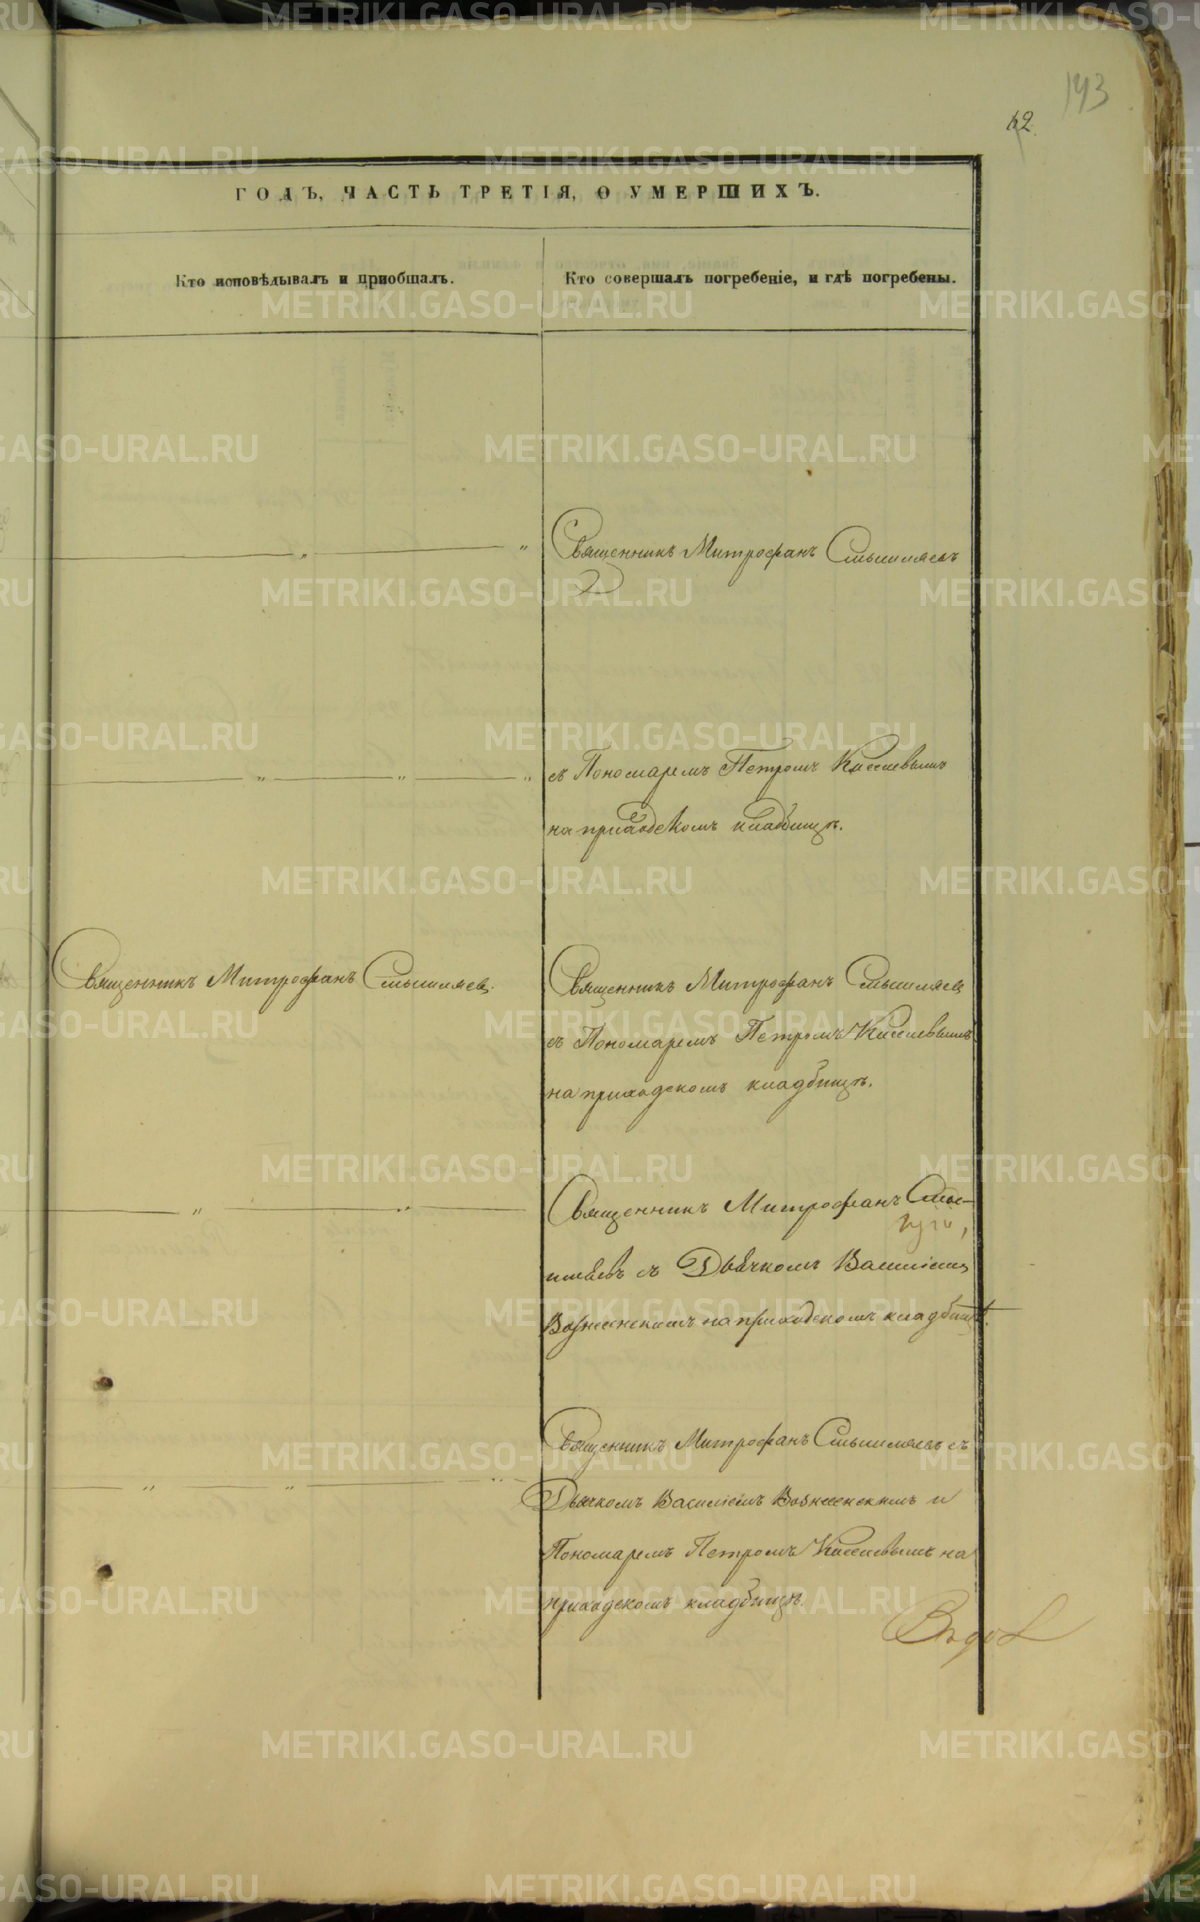 143
62.
ГОДЪ, ЧАСТЬ ТРЕТІЯ, О УМЕРШИХЪ.
Кто исповѣдывалъ и пріобщалъ.
Кто совершалъ погребеніе, и гдѣ погребены.
Священникъ Митрофанъ Смышляевъ
съ Пономаремъ Петромъ Киселевымъ
на приходскомъ кладбищѣ.
Священникъ Митрофанъ Смышляевъ.
Священникъ Митрофанъ Смышляевъ
съ Пономаремъ Петромъ Киселевымъ
на приходскомъ кладбищѣ.
Священникъ Митрофанъ Смы-
шляевъ съ Дьячкомъ Василіемъ
Вознесенскимъ на приходскомъ кладбищѣ.
Священникъ Митрофанъ Смышляевъ съ
Дьячкомъ Василіемъ Вознесенскимъ и
Пономаремъ Петромъ Киселевымъ на
приходскомъ кладбищѣ.
METRIKI.GASO-URAL.RU